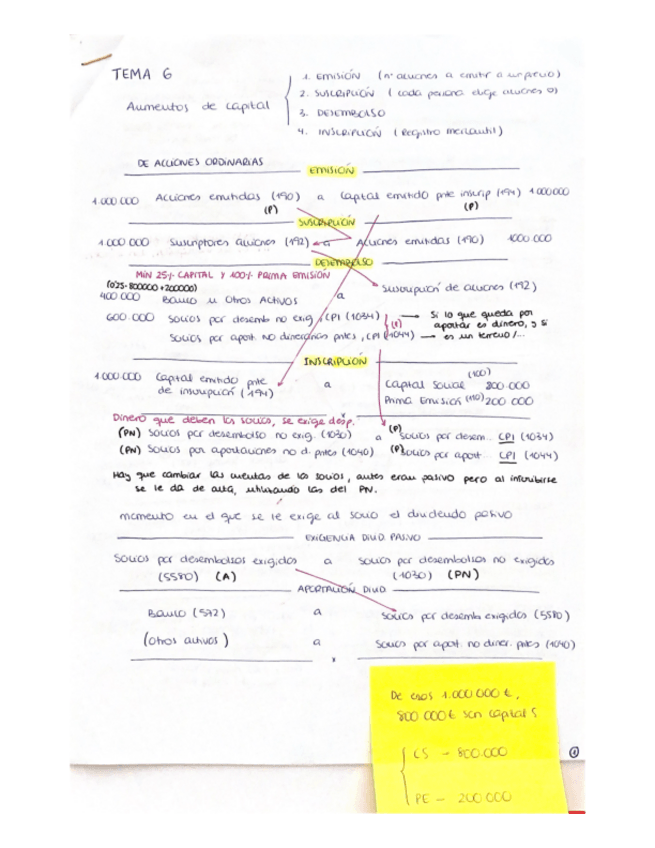 TEMA 6
Aumentos de capital
1. EMISIÓN (nº acciones a emitir a un precio)
2. SUSCRIPCIÓN (cada persona elige acciones
3. DESEMBOLSO
4. INSCRIPCIÓN (Registro mercantil)
DE ACCIONES ORDINARIAS
EMISIÓN
1.000.000 Acciones emitidas (190) a Capital emitido pnte inscrip (194) 1.000.000
(P) (P)
SUSCRIPCIÓN
1.000.000 Suscriptores acciones (192) a Acciones emitidas (190) 1000.000
DESEMBOLSO
MIN 25% CAPITAL Y 100% PRIMA EMISIÓN
(0'25·800000+200000)
400.000 Banco u Otros Activos a Suscripción de acciones (192)
600.000 Socios por desemb no exig, CPI (1034) (1) → Si lo que queda por aportar es dinero, y si
Socios por aport. NO dinerarias pntes, CPI (1044) → es un terreno/...
INSCRIPCIÓN
1.000.000 Capital emitido pnte de inscripción (194) a
(100)
Capital Social 800.000
Prima Emisión (110) 200 000
Dinero que deben los socios, se exige desp.
(PN) Socios por desembolso no exig. (1030) a (P) Socios por desem.. CPI (1034)
(PN) Socios por aportaciones no d. pntes (1040) (P) Socios por aport.. CPI (1044)
Hay que cambiar las cuentas de los socios, antes eran pasivo pero al inscribirse
se le da de alta, utilizando las del PN.
momento en el que se le exige al socio el dividendo pasivo
EXIGENCIA DIVID. PASIVO
Socios por desembolsos exigidos a Socios por desembolsos no exigidos
(5580) (A) (1030) (PN)
APORTACIÓN DIVID
Banco (572) a Socios por desemb exigidos (5580)
(Otros activos) a Socios por aport. no diner. pntes (1040)
De esos 1.000 000 €,
800 000 € son capital S
CS - 800.000
PE - 200 000
1